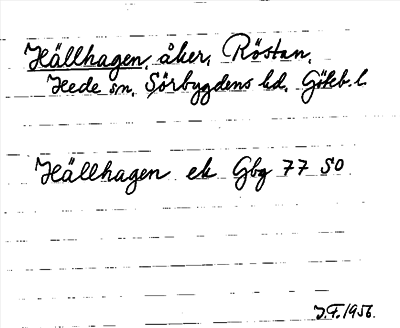 Hällhagen, åker, Röstan,
Hede sn, Sörbygdens hd, Göteb. l.
Hällhagen ek Gbg 77 SO
J.F. 1956.